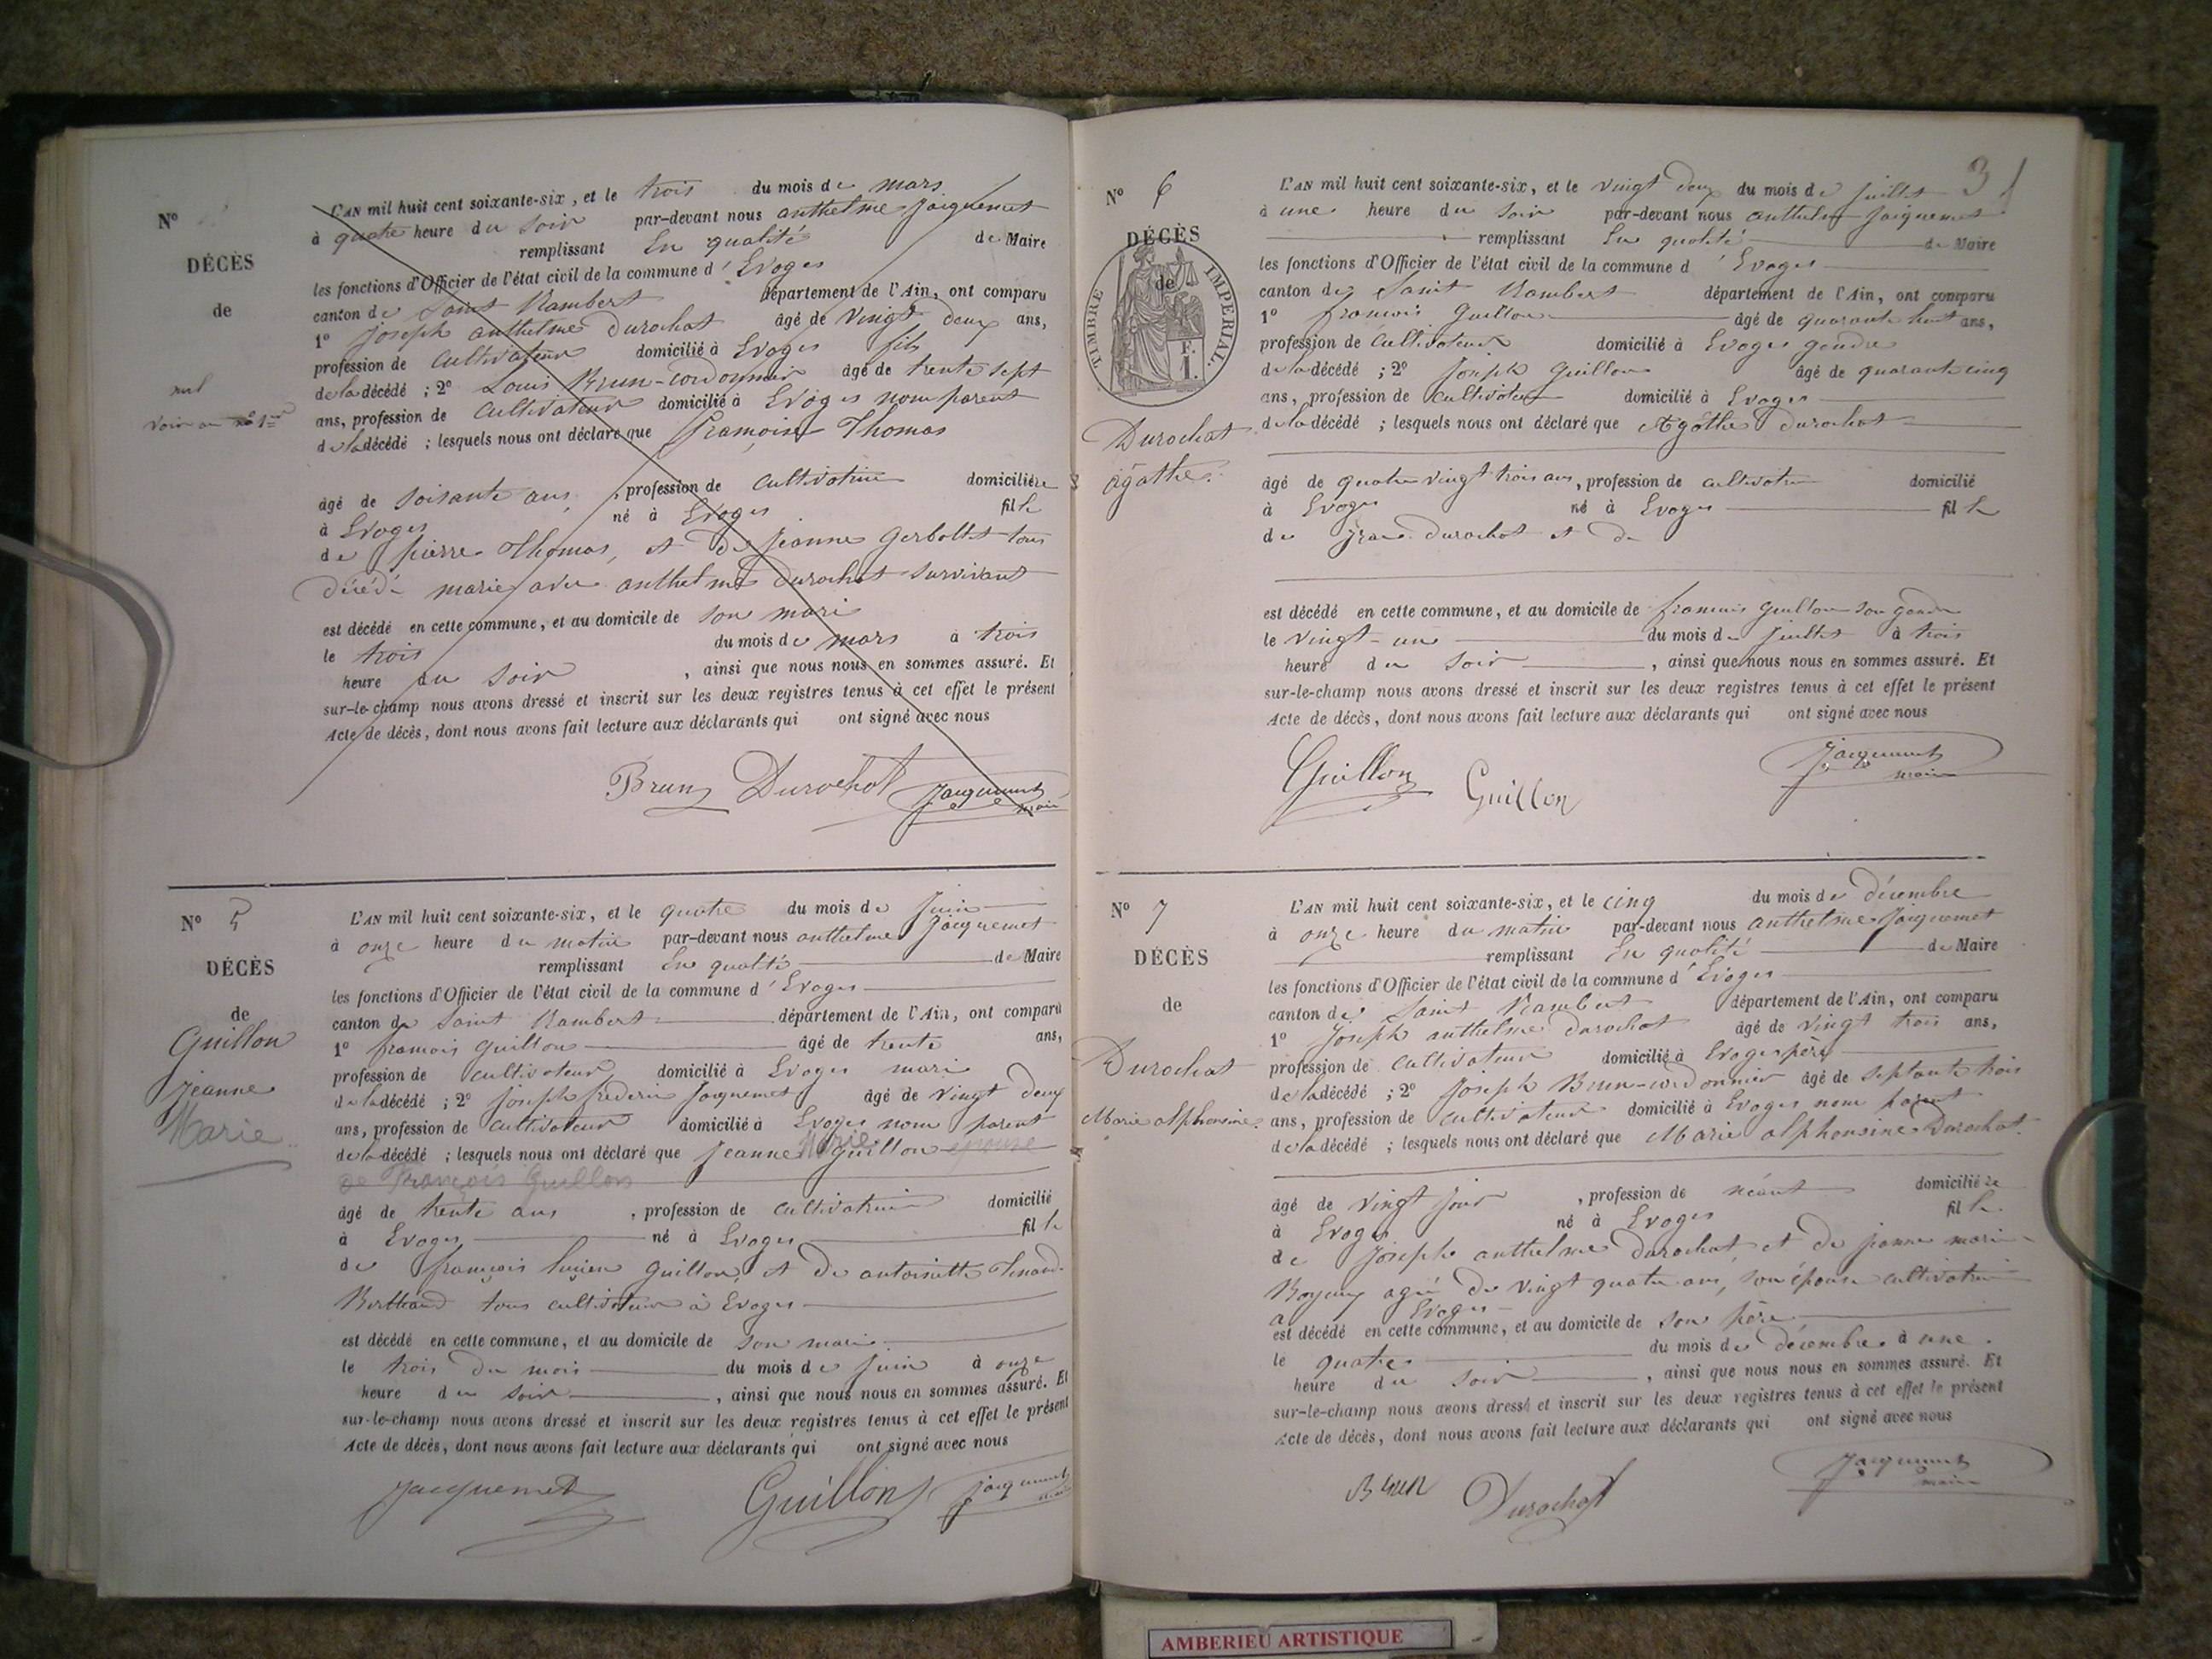 N°
DÉCÈS
de
nul
voir au n° 1er
L'AN mil huit cent soixante-six, et le trois du mois de mars
à quatre heure du soir par-devant nous anthelme Jacquemet
remplissant En qualité de Maire
les fonctions d'Officier de l'état civil de la commune d'Evoges
canton de Saint Rambert département de l'Ain, ont comparu
1° Joseph anthelme Durochat âgé de vingt deux ans,
profession de cultivateur domicilié à Evoges fils
de la décédé ; 2° Louis Brun-cordonnier âgé de trente sept
ans, profession de cultivateur domicilié à Evoges nom parent
de la décédé ; lesquels nous ont déclaré que françoise Thomas
âgé de soisante ans, profession de cultivatrice domicilière
à Evoges né à Evoges fille
de pierre Thomas, et de jeanne Gerbollet tous
décédé mariez avec anthelme Durochat survivant
est décédé en cette commune, et au domicile de son mari
le trois du mois de mars à trois
heure du soir, ainsi que nous nous en sommes assuré. Et
sur-le-champ nous avons dressé et inscrit sur les deux registres tenus à cet effet le présent
Acte de décès, dont nous avons fait lecture aux déclarants qui ont signé avec nous
Brun Durochat Jacquemet maire
N° 5
DÉCÈS
de
Guillon
Jeanne
Marie
L'AN mil huit cent soixante-six, et le quatre du mois de Juin
à onze heure du matin par-devant nous anthelme Jacquemet
remplissant En qualité de Maire
les fonctions d'Officier de l'état civil de la commune d'Evoges
canton de Saint Rambert département de l'Ain, ont comparu
1° francois Guillon âgé de trente ans,
profession de cultivateur domicilié à Evoges mari
de la décédé ; 2° Joseph frederic Jacquemet âgé de vingt deux
ans, profession de cultivateur domicilié à Evoges nom parent
de la décédé ; lesquels nous ont déclaré que Jeanne Marie Guillon épouse
de François Guillon
âgé de trente ans, profession de cultivatrice domicilié
à Evoges né à Evoges fille
de françois lucien Guillon, et de antoinette Tenand
Berthand tous cultivateur à Evoges
est décédé en cette commune, et au domicile de son mari
le trois du mois du mois de Juin à onze
heure du soir, ainsi que nous nous en sommes assuré. Et
sur-le-champ nous avons dressé et inscrit sur les deux registres tenus à cet effet le présent
Acte de décès, dont nous avons fait lecture aux déclarants qui ont signé avec nous
Jacquemet Guillon Jacquemet
31
N° 6
DÉCÈS
de
TIMBRE IMPERIAL
F.
1.
Durochat
agathe
L'AN mil huit cent soixante-six, et le vingt deux du mois de juillet
à une heure du soir par-devant nous anthelme Jacquemet
remplissant En qualité de Maire
les fonctions d'Officier de l'état civil de la commune d'Evoges
canton de Saint Rambert département de l'Ain, ont comparu
1° francois Guillon âgé de quarante huit ans,
profession de cultivateur domicilié à Evoges gendre
de la décédé ; 2° Joseph Guillon âgé de quarante cinq
ans, profession de cultivateur domicilié à Evoges
de la décédé ; lesquels nous ont déclaré que Agathe Durochat
âgé de quatre vingt trois ans, profession de cultivatrice domicilié
à Evoges né à Evoges fille
de Durochat et de
est décédé en cette commune, et au domicile de francois Guillon son gendre
le vingt-un du mois de Juillet à trois
heure du soir, ainsi que nous nous en sommes assuré. Et
sur-le-champ nous avons dressé et inscrit sur les deux registres tenus à cet effet le présent
Acte de décès, dont nous avons fait lecture aux déclarants qui ont signé avec nous
Guillon Guillon Jacquemet maire
N° 7
DÉCÈS
de
Durochat
Marie alphonsine
L'AN mil huit cent soixante-six, et le cinq du mois de décembre
à onze heure du matin par-devant nous anthelme Jacquemet
remplissant En qualité de Maire
les fonctions d'Officier de l'état civil de la commune d'Evoges
canton de Saint Rambert département de l'Ain, ont comparu
1° Joseph anthelme Durochat âgé de vingt trois ans,
profession de cultivateur domicilié à Evoges père
de la décédé ; 2° Joseph Brun-cordonnier âgé de septante trois
ans, profession de cultivateur domicilié à Evoges nom parent
de la décédé ; lesquels nous ont déclaré que Marie alphonsine Durochat
âgé de vingt jour, profession de néant domicilière
à Evoges né à Evoges fille
de Joseph anthelme Durochat et de jeanne marie
agée de vingt quatre ans, son épouse cultivatrice
a Evoges
est décédé en cette commune, et au domicile de son père
le quatre du mois de décembre à une
heure du soir, ainsi que nous nous en sommes assuré. Et
sur-le-champ nous avons dressé et inscrit sur les deux registres tenus à cet effet le présent
Acte de décès, dont nous avons fait lecture aux déclarants qui ont signé avec nous
Brun Durochat Jacquemet maire
AMBERIEU ARTISTIQUE